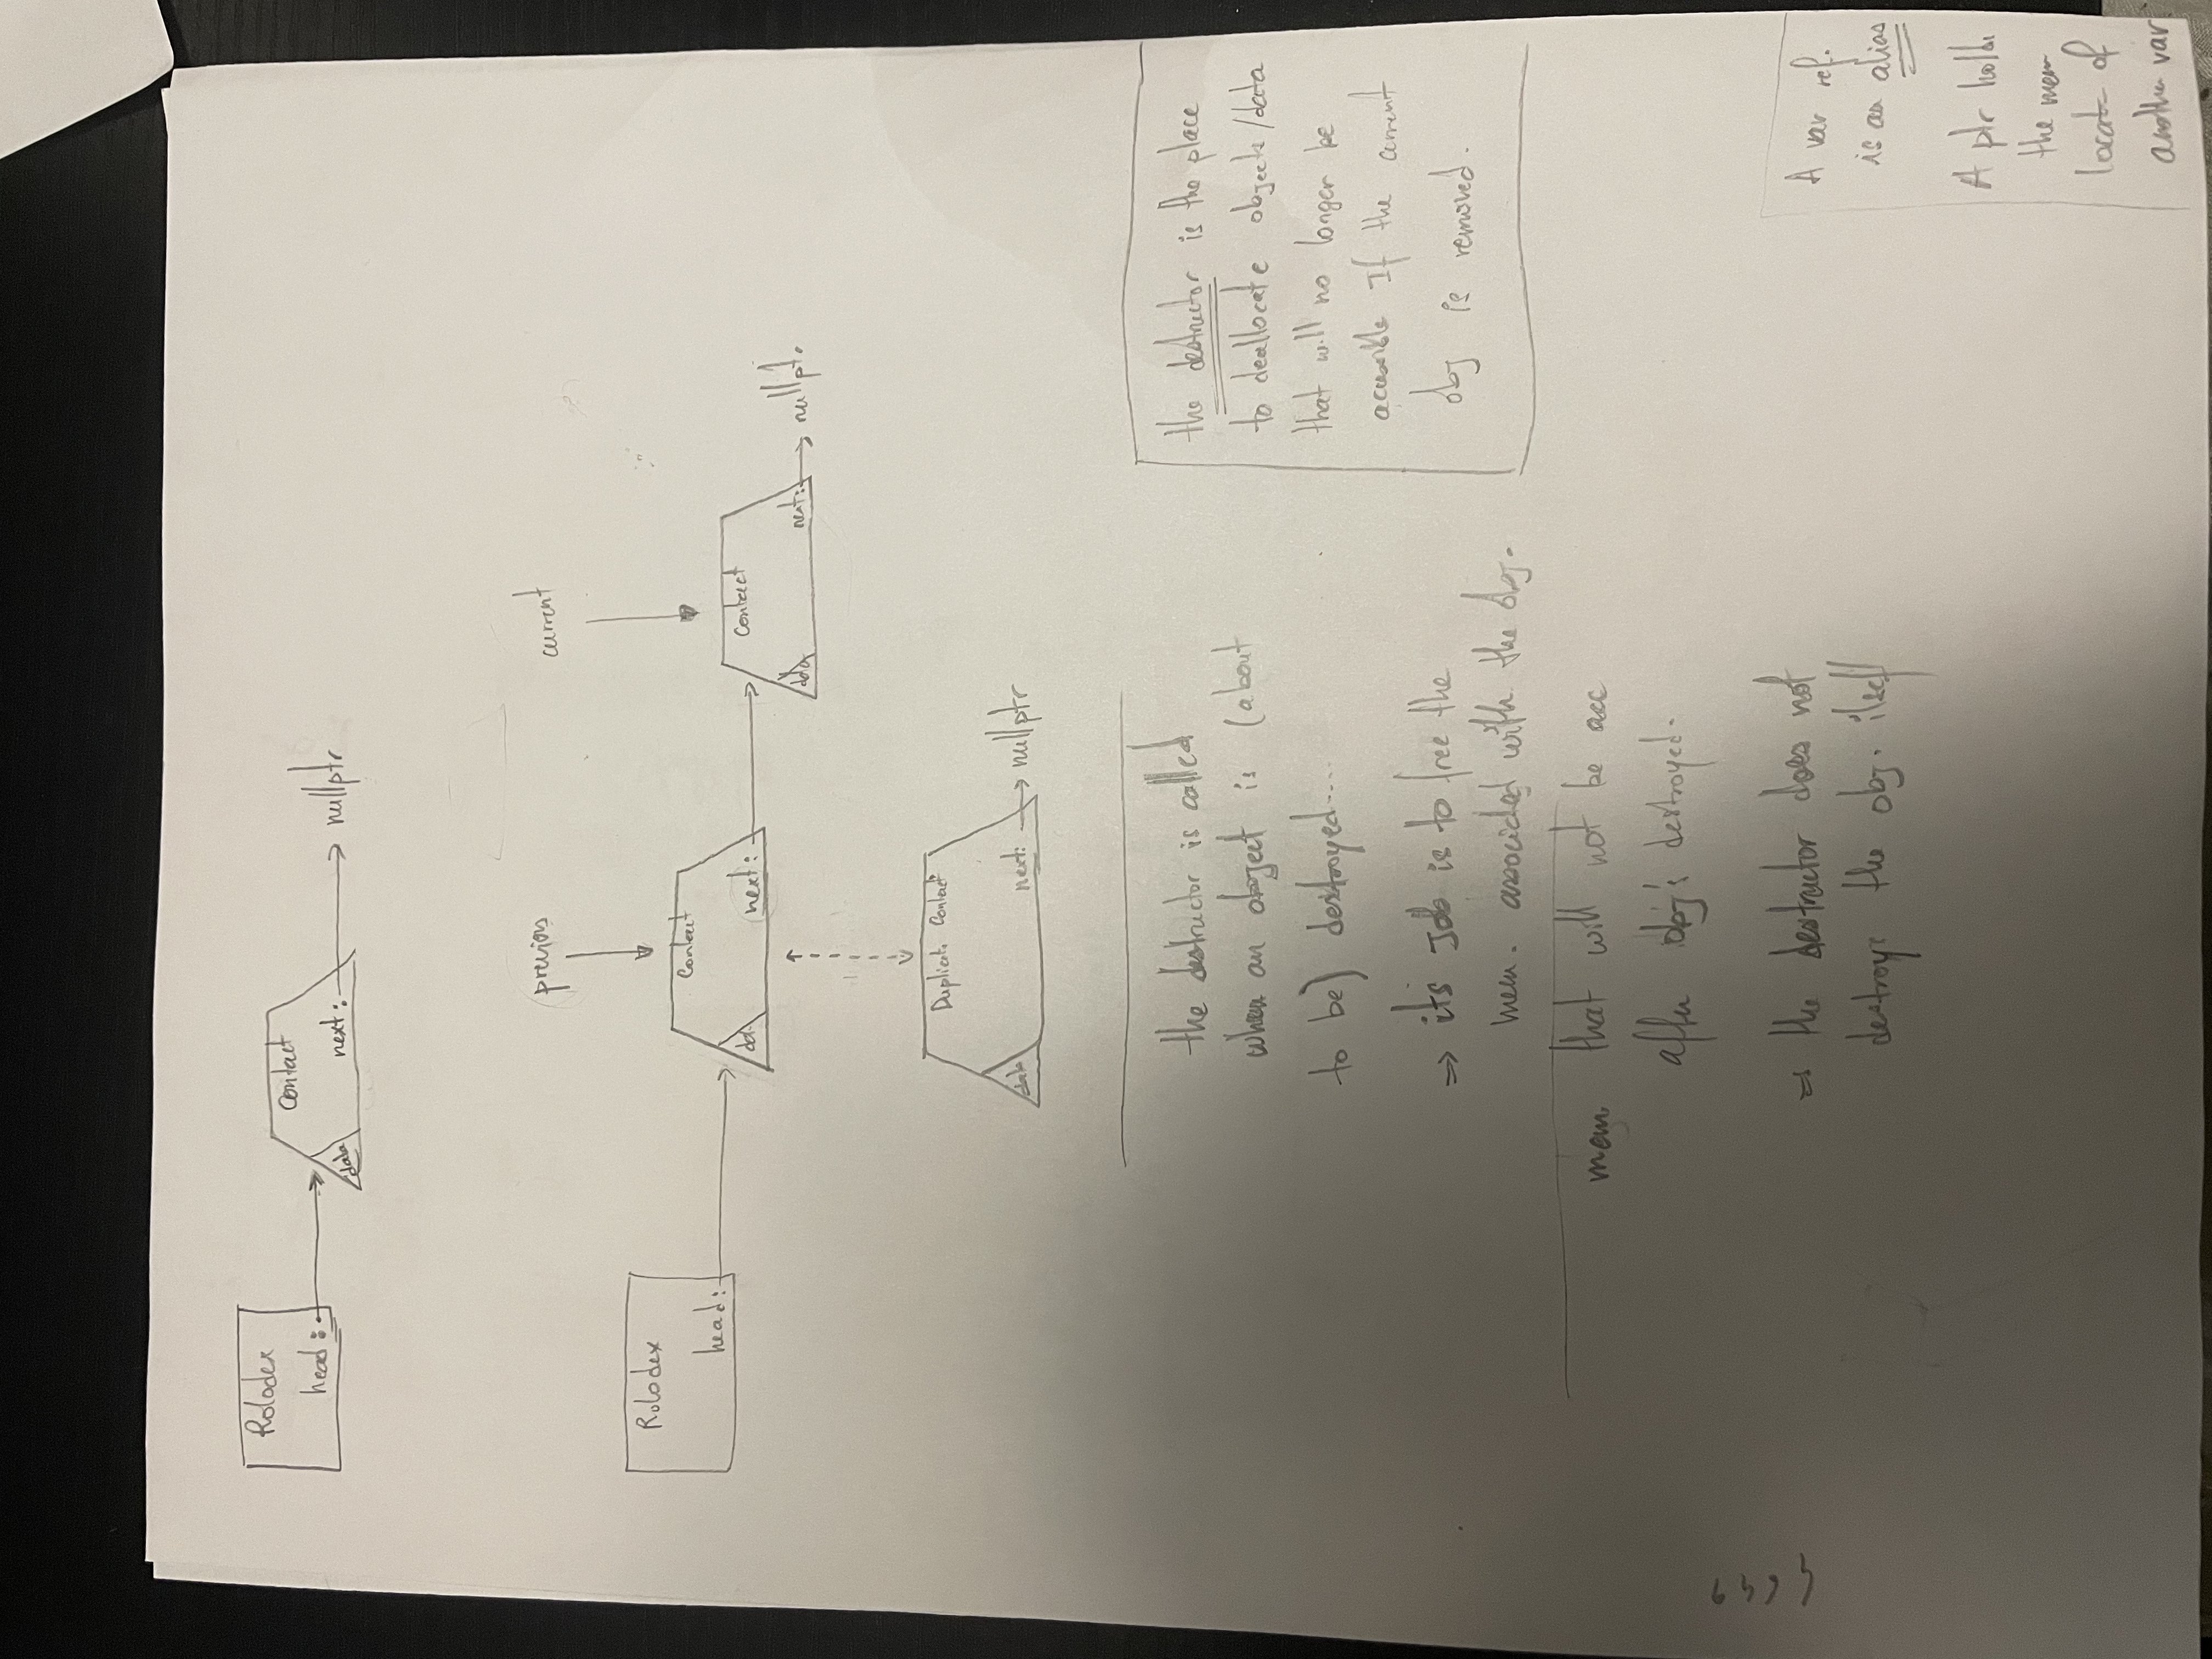 Rolodex
head:
Contact
data
next:
nullptr
previous
current
Rolodex
head:
Contact
next:
Contact
data
next:
nullptr
Duplicate Contact
data
next:
nullptr
the destructor is called
when an object is (about
to be) destroyed....
⇒ its Job is to free the
mem. associated with the obj.
mem that will not be acc
after obj's destroyed.
⇒ the destructor does not
destroys the obj. itself
the destructor is the place
to deallocate objects/data
that will no longer be
accessible If the current
obj is removed.
A var ref.
is an alias
A ptr holds
the mem
locat- of
another var